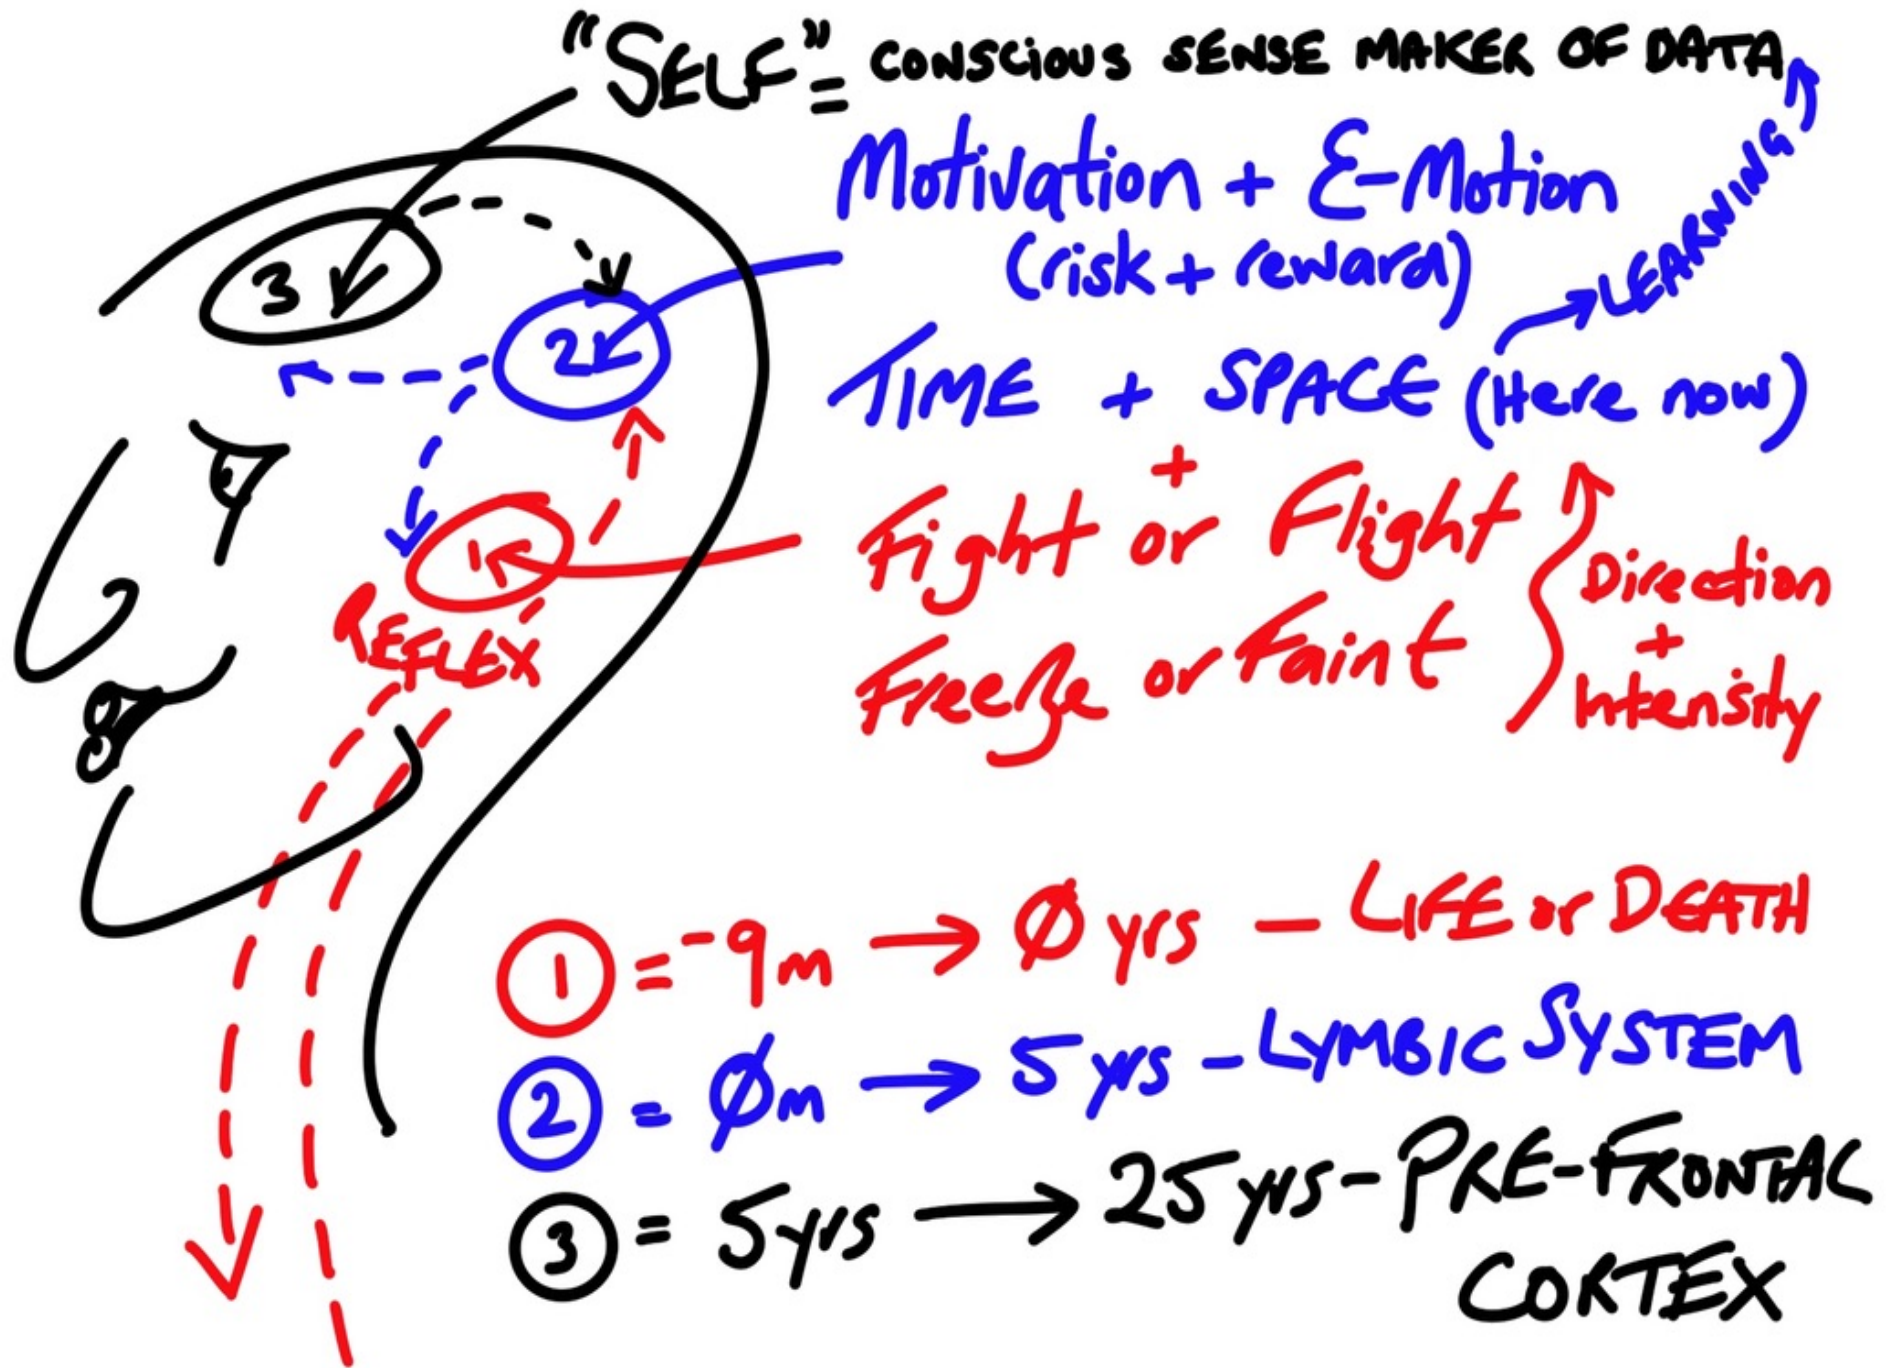 "SELF" = CONSCIOUS SENSE MAKER OF DATA
Motivation + E-Motion
(risk + reward)
LEARNING
TIME + SPACE (Here now)
+
Fight or Flight
Freeze or Faint
Direction
+
Intensity
3
2
1
REFLEX
1 = -9m → Ø yrs - LIFE or DEATH
2 = Øm → 5 yrs - LYMBIC SYSTEM
3 = 5yrs → 25 yrs - PRE-FRONTAL
CORTEX